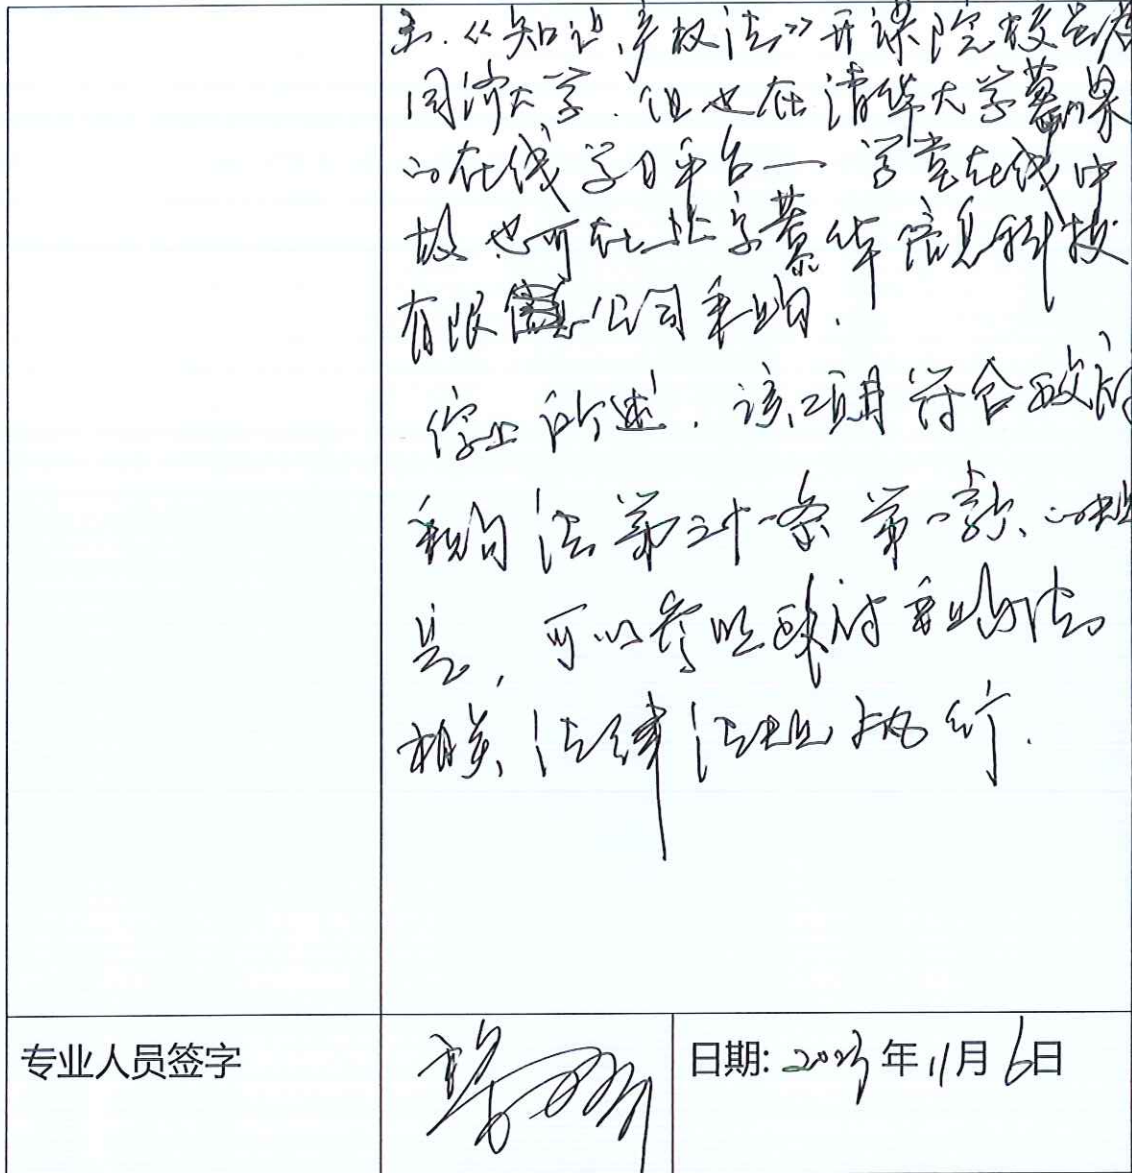 3.《知识产权法》开课院校虽为
同济大学.但也在清华大学慕课
的在线学习平台一学堂在线中
故也可在北京慕华信息科技
有限公司采购.
综上所述.该项目符合政府
采购法第三十一条第一款的规
定,可以参照政府采购法
相关法律法规执行.
专业人员签字
日期:2023年11月6日